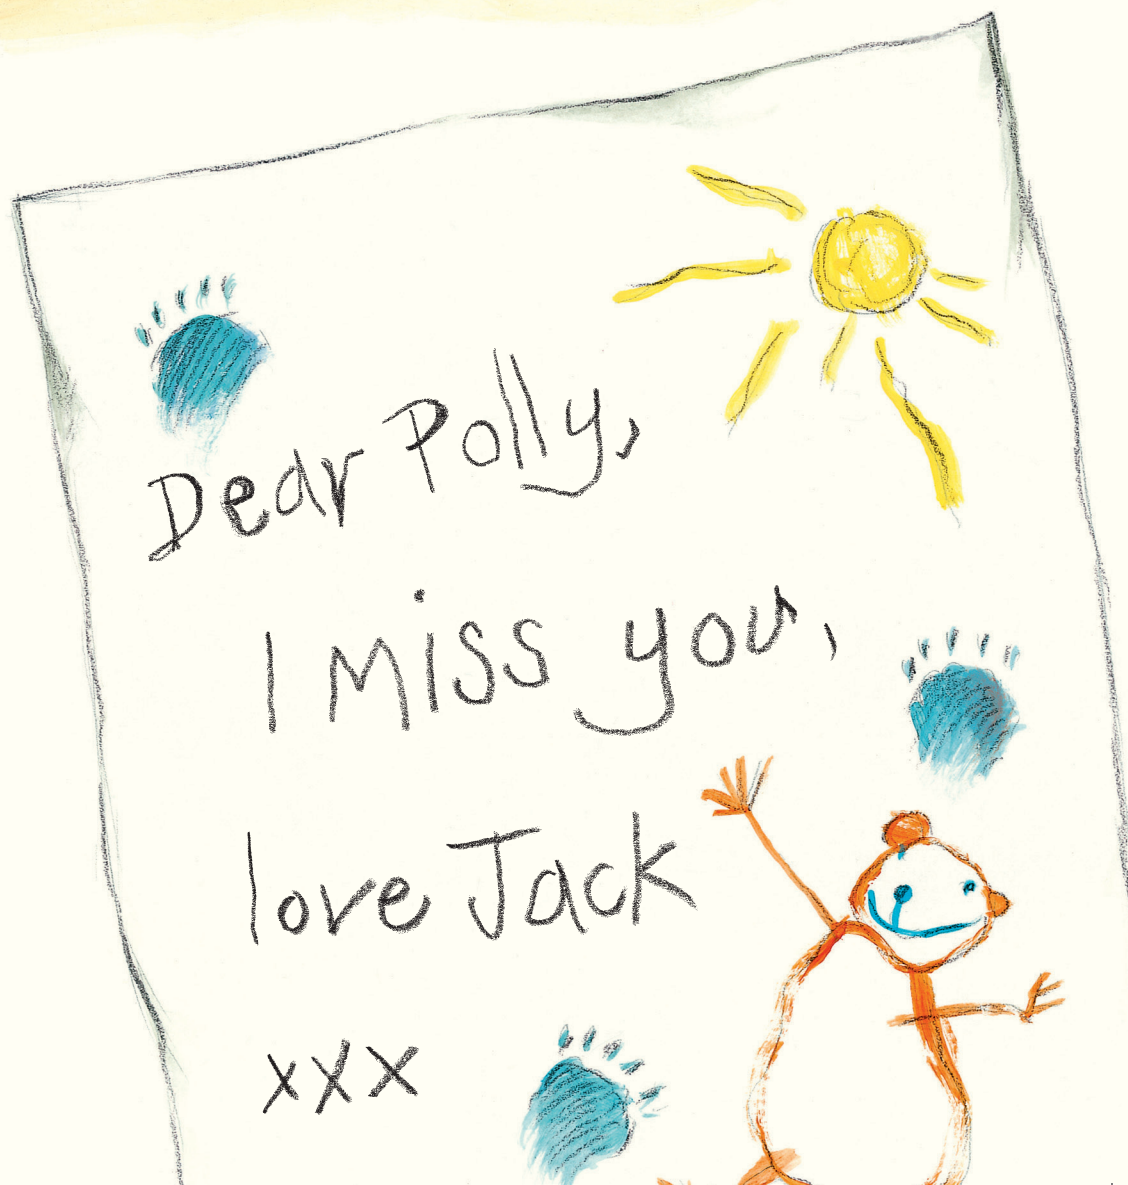 Dear Polly,
I miss you,
love Jack
xxx